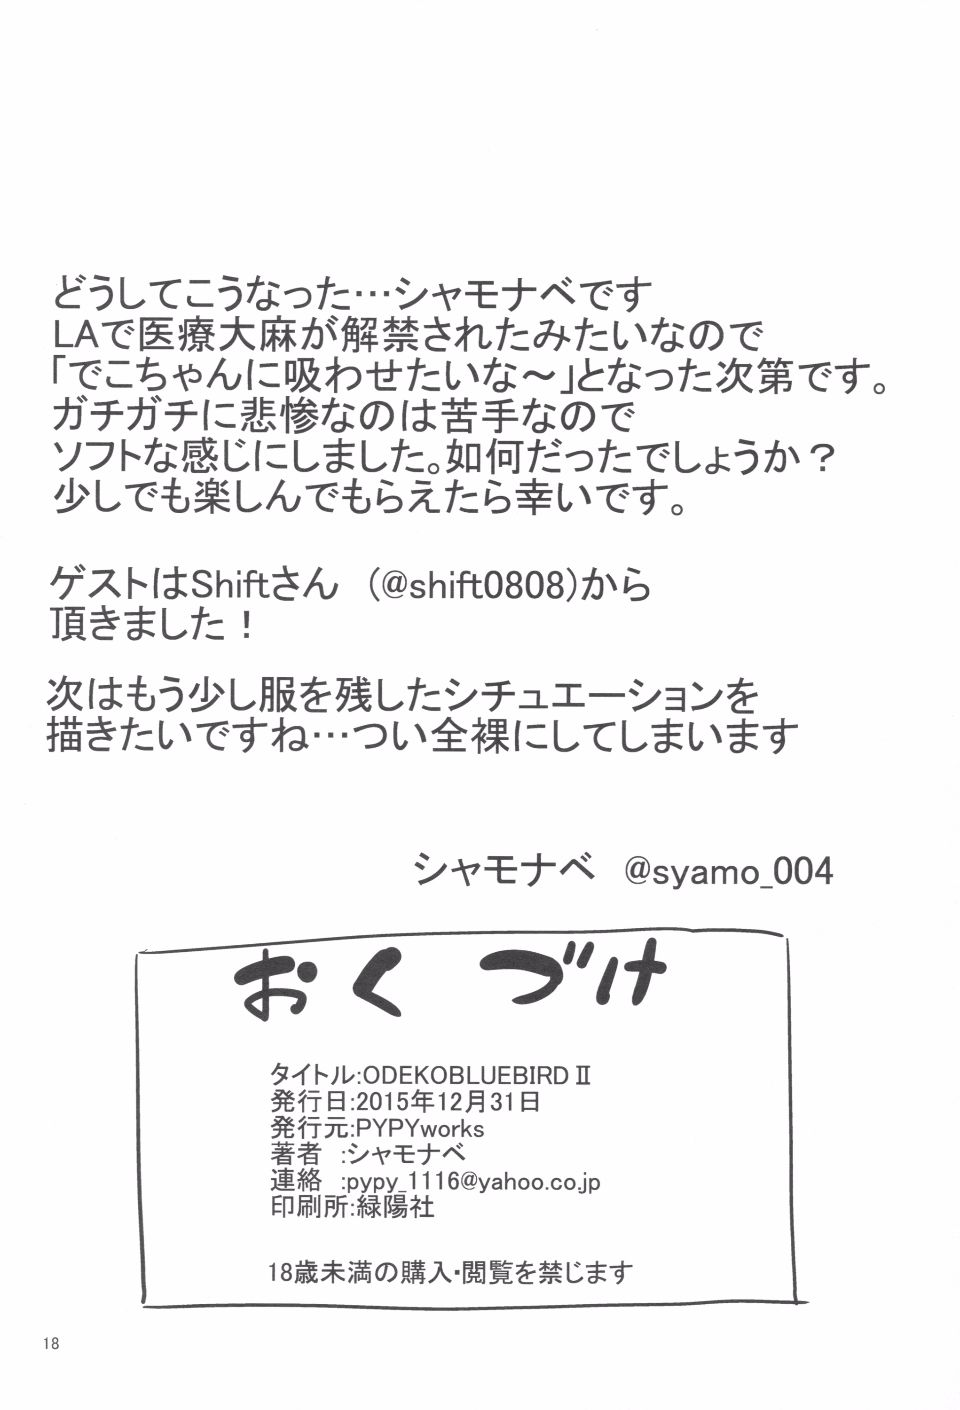 どうしてこうなった…シャモナベです
LAで医療大麻が解禁されたみたいなので
「でこちゃんに吸わせたいな～」となった次第です。
ガチガチに悲惨なのは苦手なので
ソフトな感じにしました。如何だったでしょうか？
少しでも楽しんでもらえたら幸いです。
ゲストはShiftさん （@shift0808）から
頂きました！
次はもう少し服を残したシチュエーションを
描きたいですね…つい全裸にしてしまいます
シャモナベ @syamo_004
おくづけ
タイトル:ODEKOBLUEBIRDⅡ
発行日:2015年12月31日
発行元:PYPYworks
著者 :シャモナベ
連絡 :pypy_1116@yahoo.co.jp
印刷所:緑陽社
18歳未満の購入・閲覧を禁じます
18